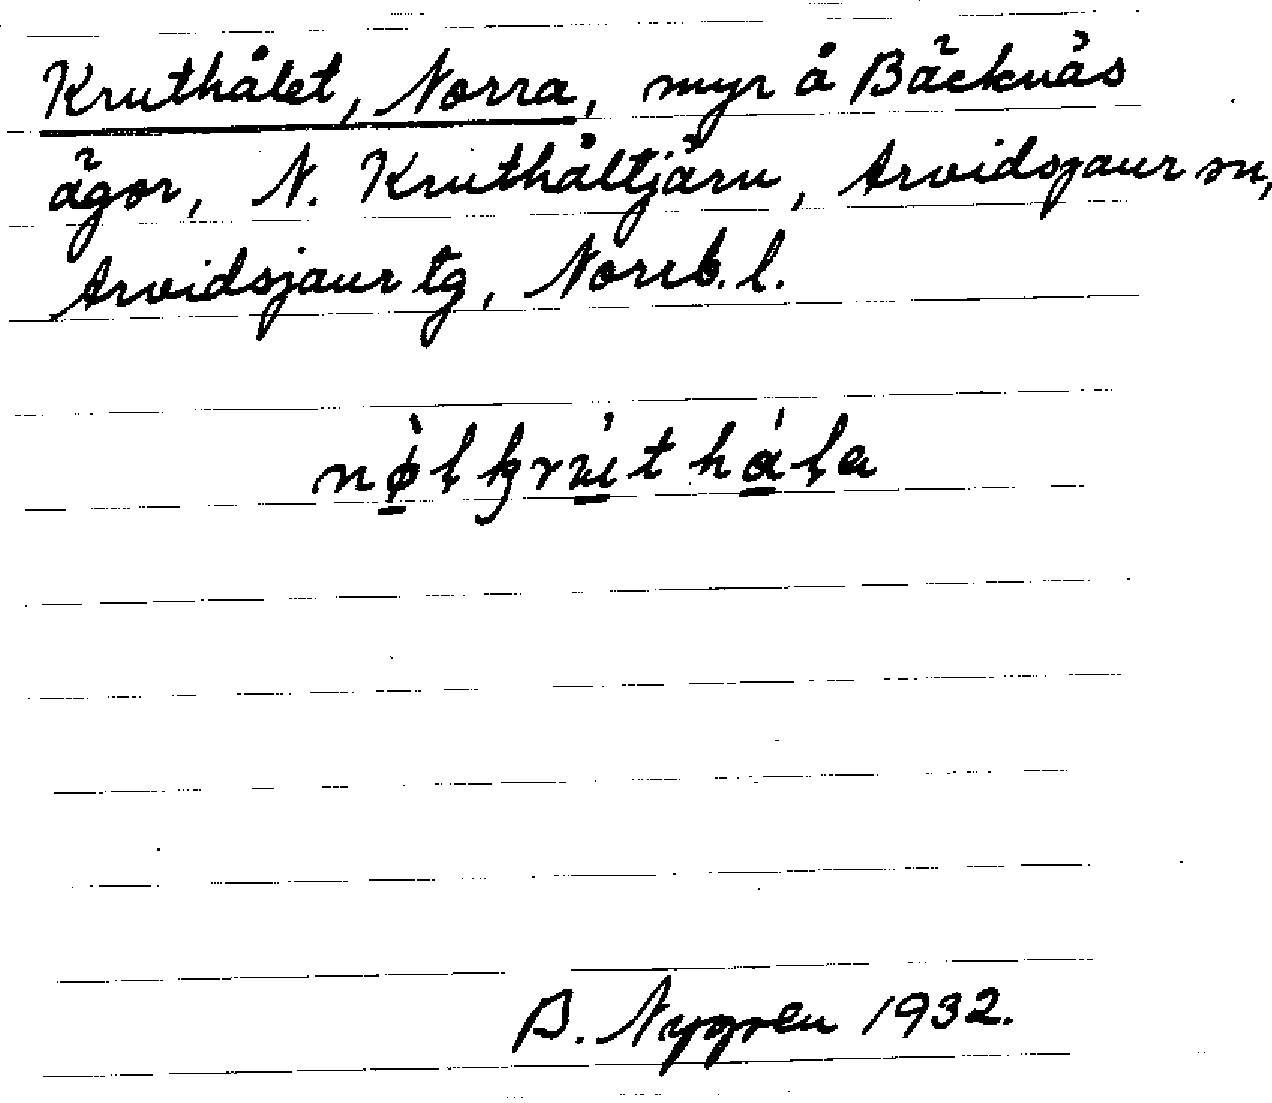 Kruthålet, Norra, myr å Bäcknäs
ägor, N. Kruthåltjärn, Arvidsjaur sn,
Arvidsjaur tg, Norrb. l.
B. Nygren 1932.